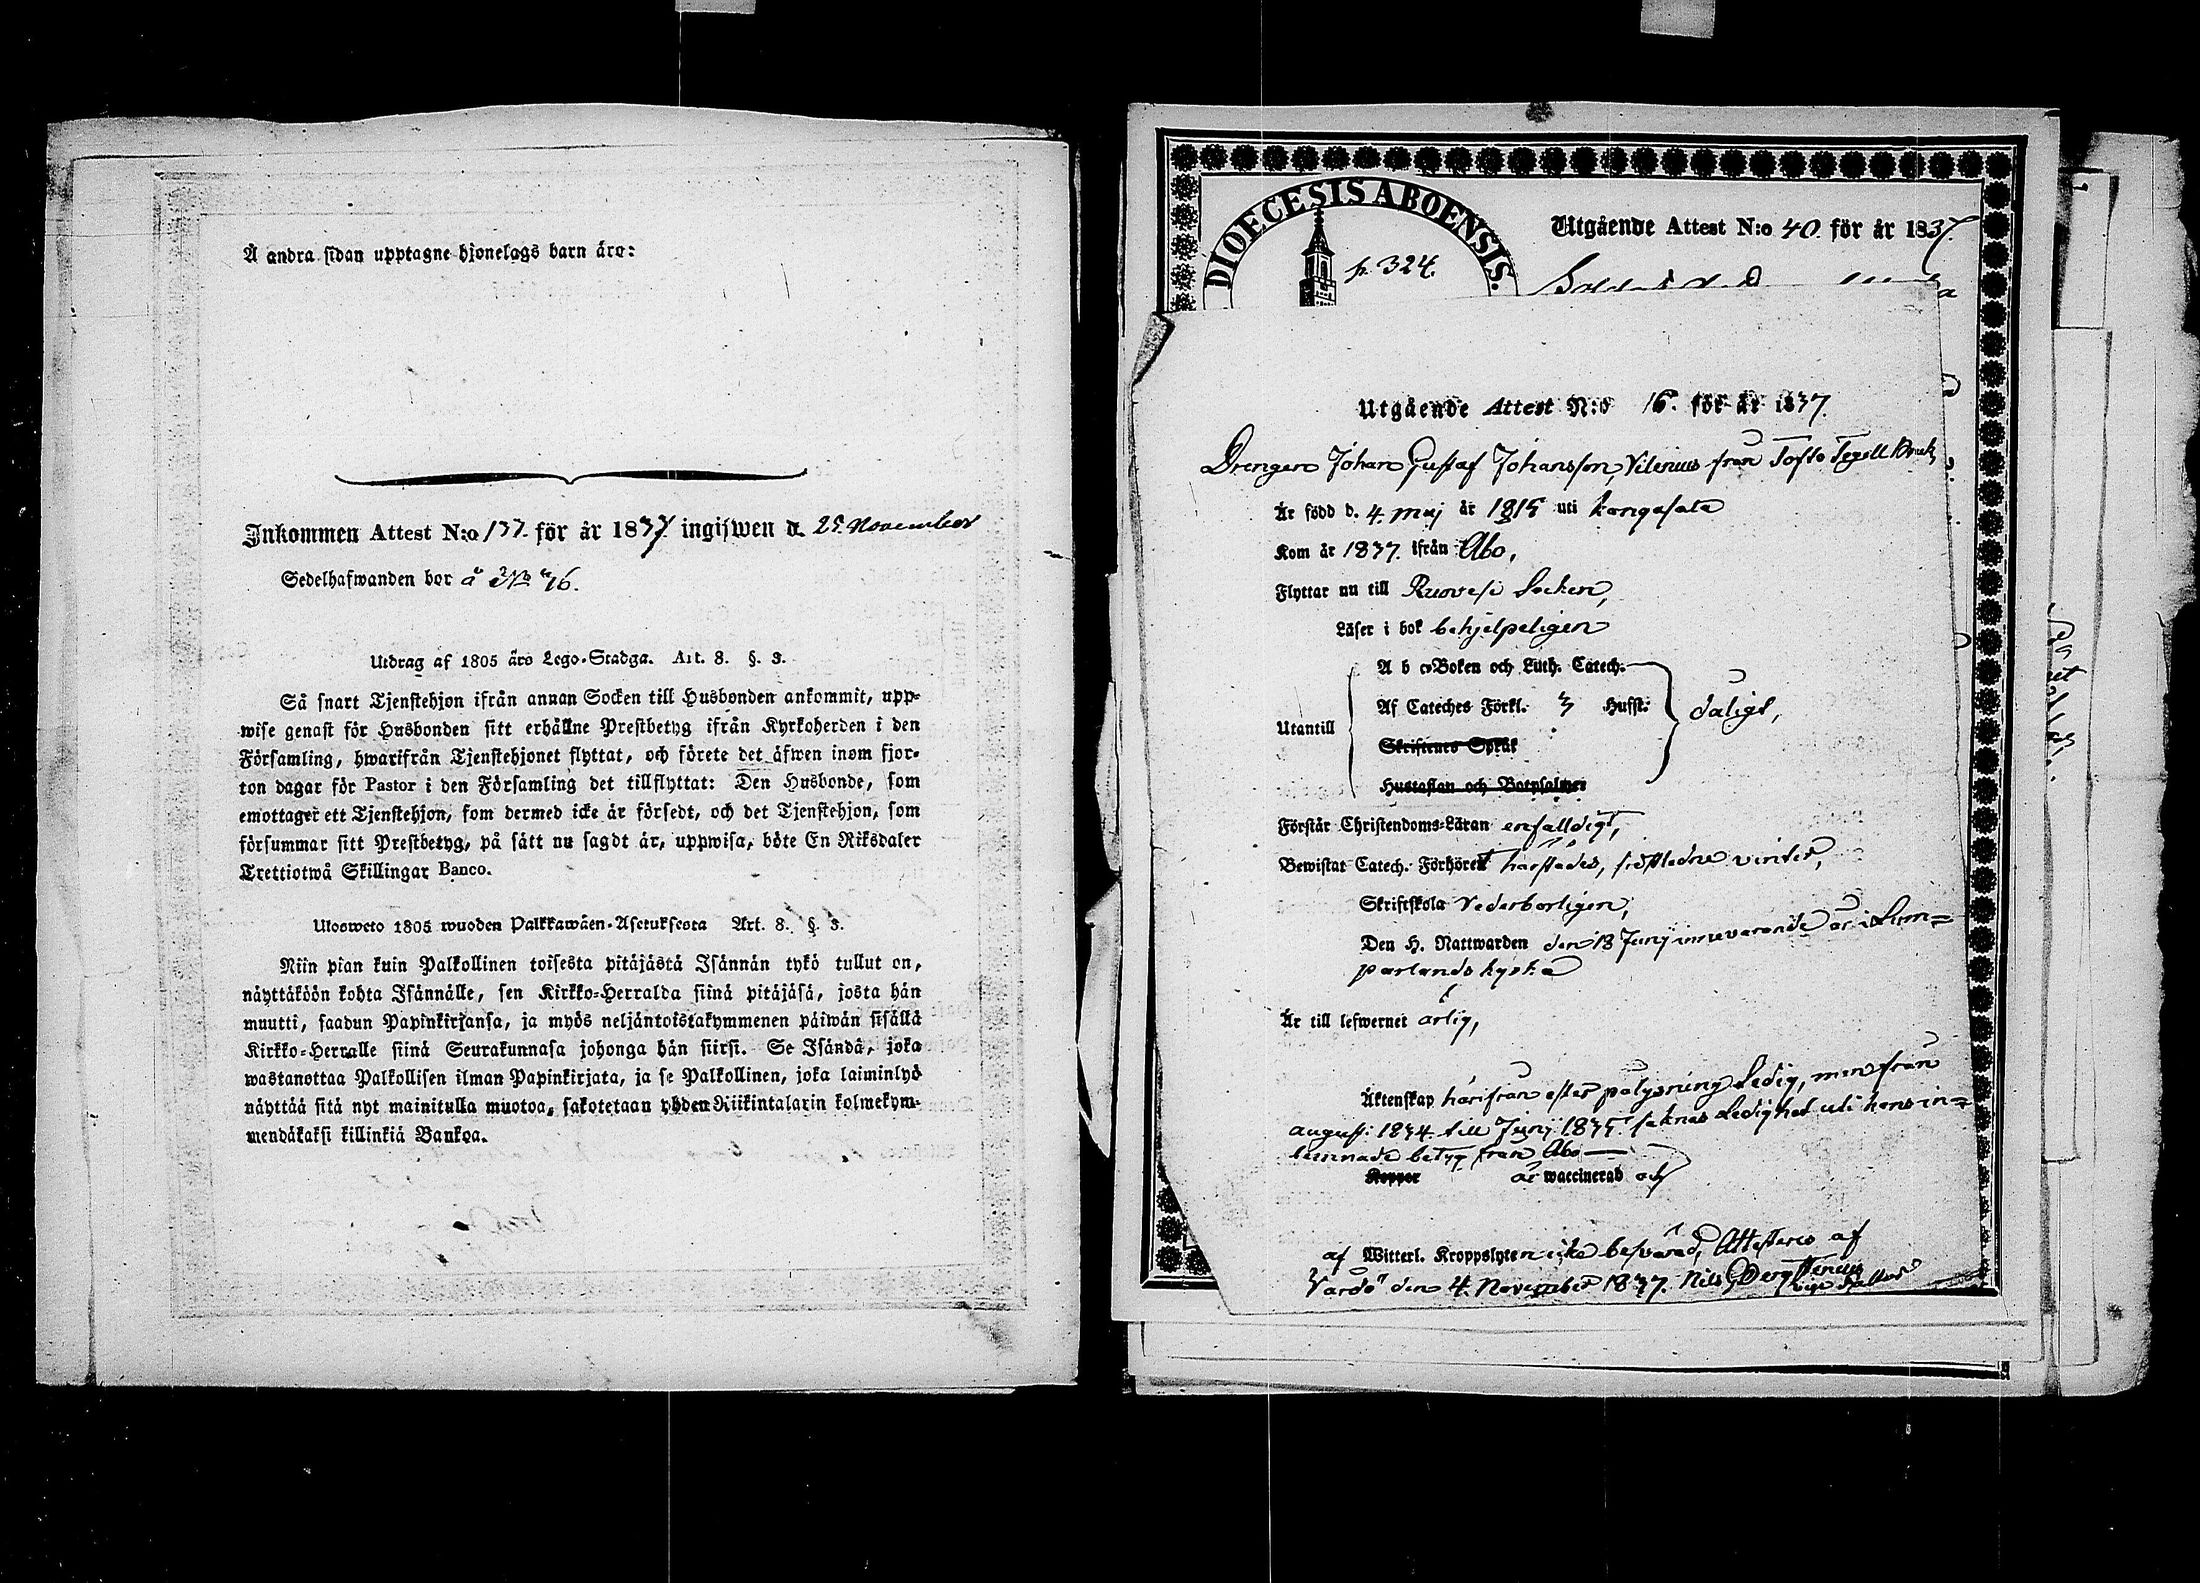 Å andra sidan upptagne hjonelags barn äro:
Inkommen Attest N:o 137. för år 1837. ingifwen d. 25. November
Sedelhafwanden bor å No 76.
Utdrag af 1805 års Lego-Stadga. Art. 8. §. 3.
Så snart Tjenstehjon ifrån annan Socken till Husbonden ankommit, upp-
wise genast för Husbonden sitt erhållne Prestbetyg ifrån Kyrkoherden i den
Församling, hwarifrån Tjenstehjonet flyttat, och förete det äfwen inom fjor-
ton dagar för Pastor i den Församling det tillflyttat: Den Husbonde, som
emottager ett Tjenstehjon, som dermed icke är försedt, och det Tjenstehjon, som
försummar sitt Prestbetyg, på sätt nu sagdt är, uppwisa, böte En Riksdaler
Trettiotwå Skillingar Banco.
Ulosweto 1805 wuoden Palkkawäen-Asetuksesta Art. 8. §. 3.
Niin pian kuin Palkollinen toisesta pitäjästä Isännän tykö tullut on,
näyttäköön kohta Isännälle, sen Kirkko-Herralda siinä pitäjäsä, josta hän
muutti, saadun Papinkirjansa, ja myös neljäntoistakymmenen päiwän sisällä
Kirkko-Herralle siinä Seurakunnasa johonga hän siirsi. Se Isändä, joka
wastanottaa Palkollisen ilman Papinkirjata, ja se Palkollinen, joka laiminlyö
näyttää sitä nyt mainitulla muotoa, sakotetaan yhden Riikintalarin kolmekym-
mendäkaksi killinkiä Bankoa.
DIOECESIS ABOENSIS.
p. 324.
Utgående Attest N:o 40. för år 1837.
Utgående Attest N:o 16. för år 1837.
Drengen Johan Gustaf Johansson, Vilenius från Tofto Tegell Bruk
Är född d. 4. maj år 1815 uti Kangasala
Kom år 1837. ifrån Åbo,
Flyttar nu till Ruovesi Socken,
Läser i bok behjelpeligen
Utantill
A b c-Boken och Luth. Catech.
Af Cateches Förkl. 3 Hufst:
Skriftenes Språk
Hustaflan och Botpsalmer
dåligt,
Förstår Christendoms-Läran enfalldigt,
Bewistat Catech. Förhöret härstädes, sistledne vinter,
Skriftskola vederbörligen,
Den H. Nattwarden den 18 Junij innevarande år i Lum=
parlands kyrka
Är till lefwernet ärlig,
Äktenskap härifrån efter pålysning Ledig, men från
august: 1834 till Junij 1835 saknas Ledighet uti hans in=
lemnade betyg från Åbo
Koppor är waccinerad och
af Witterl. Kroppslyten icke besvärad, Attesteras af
Vårdö den 4. November 1837. Nils G Bergstenius